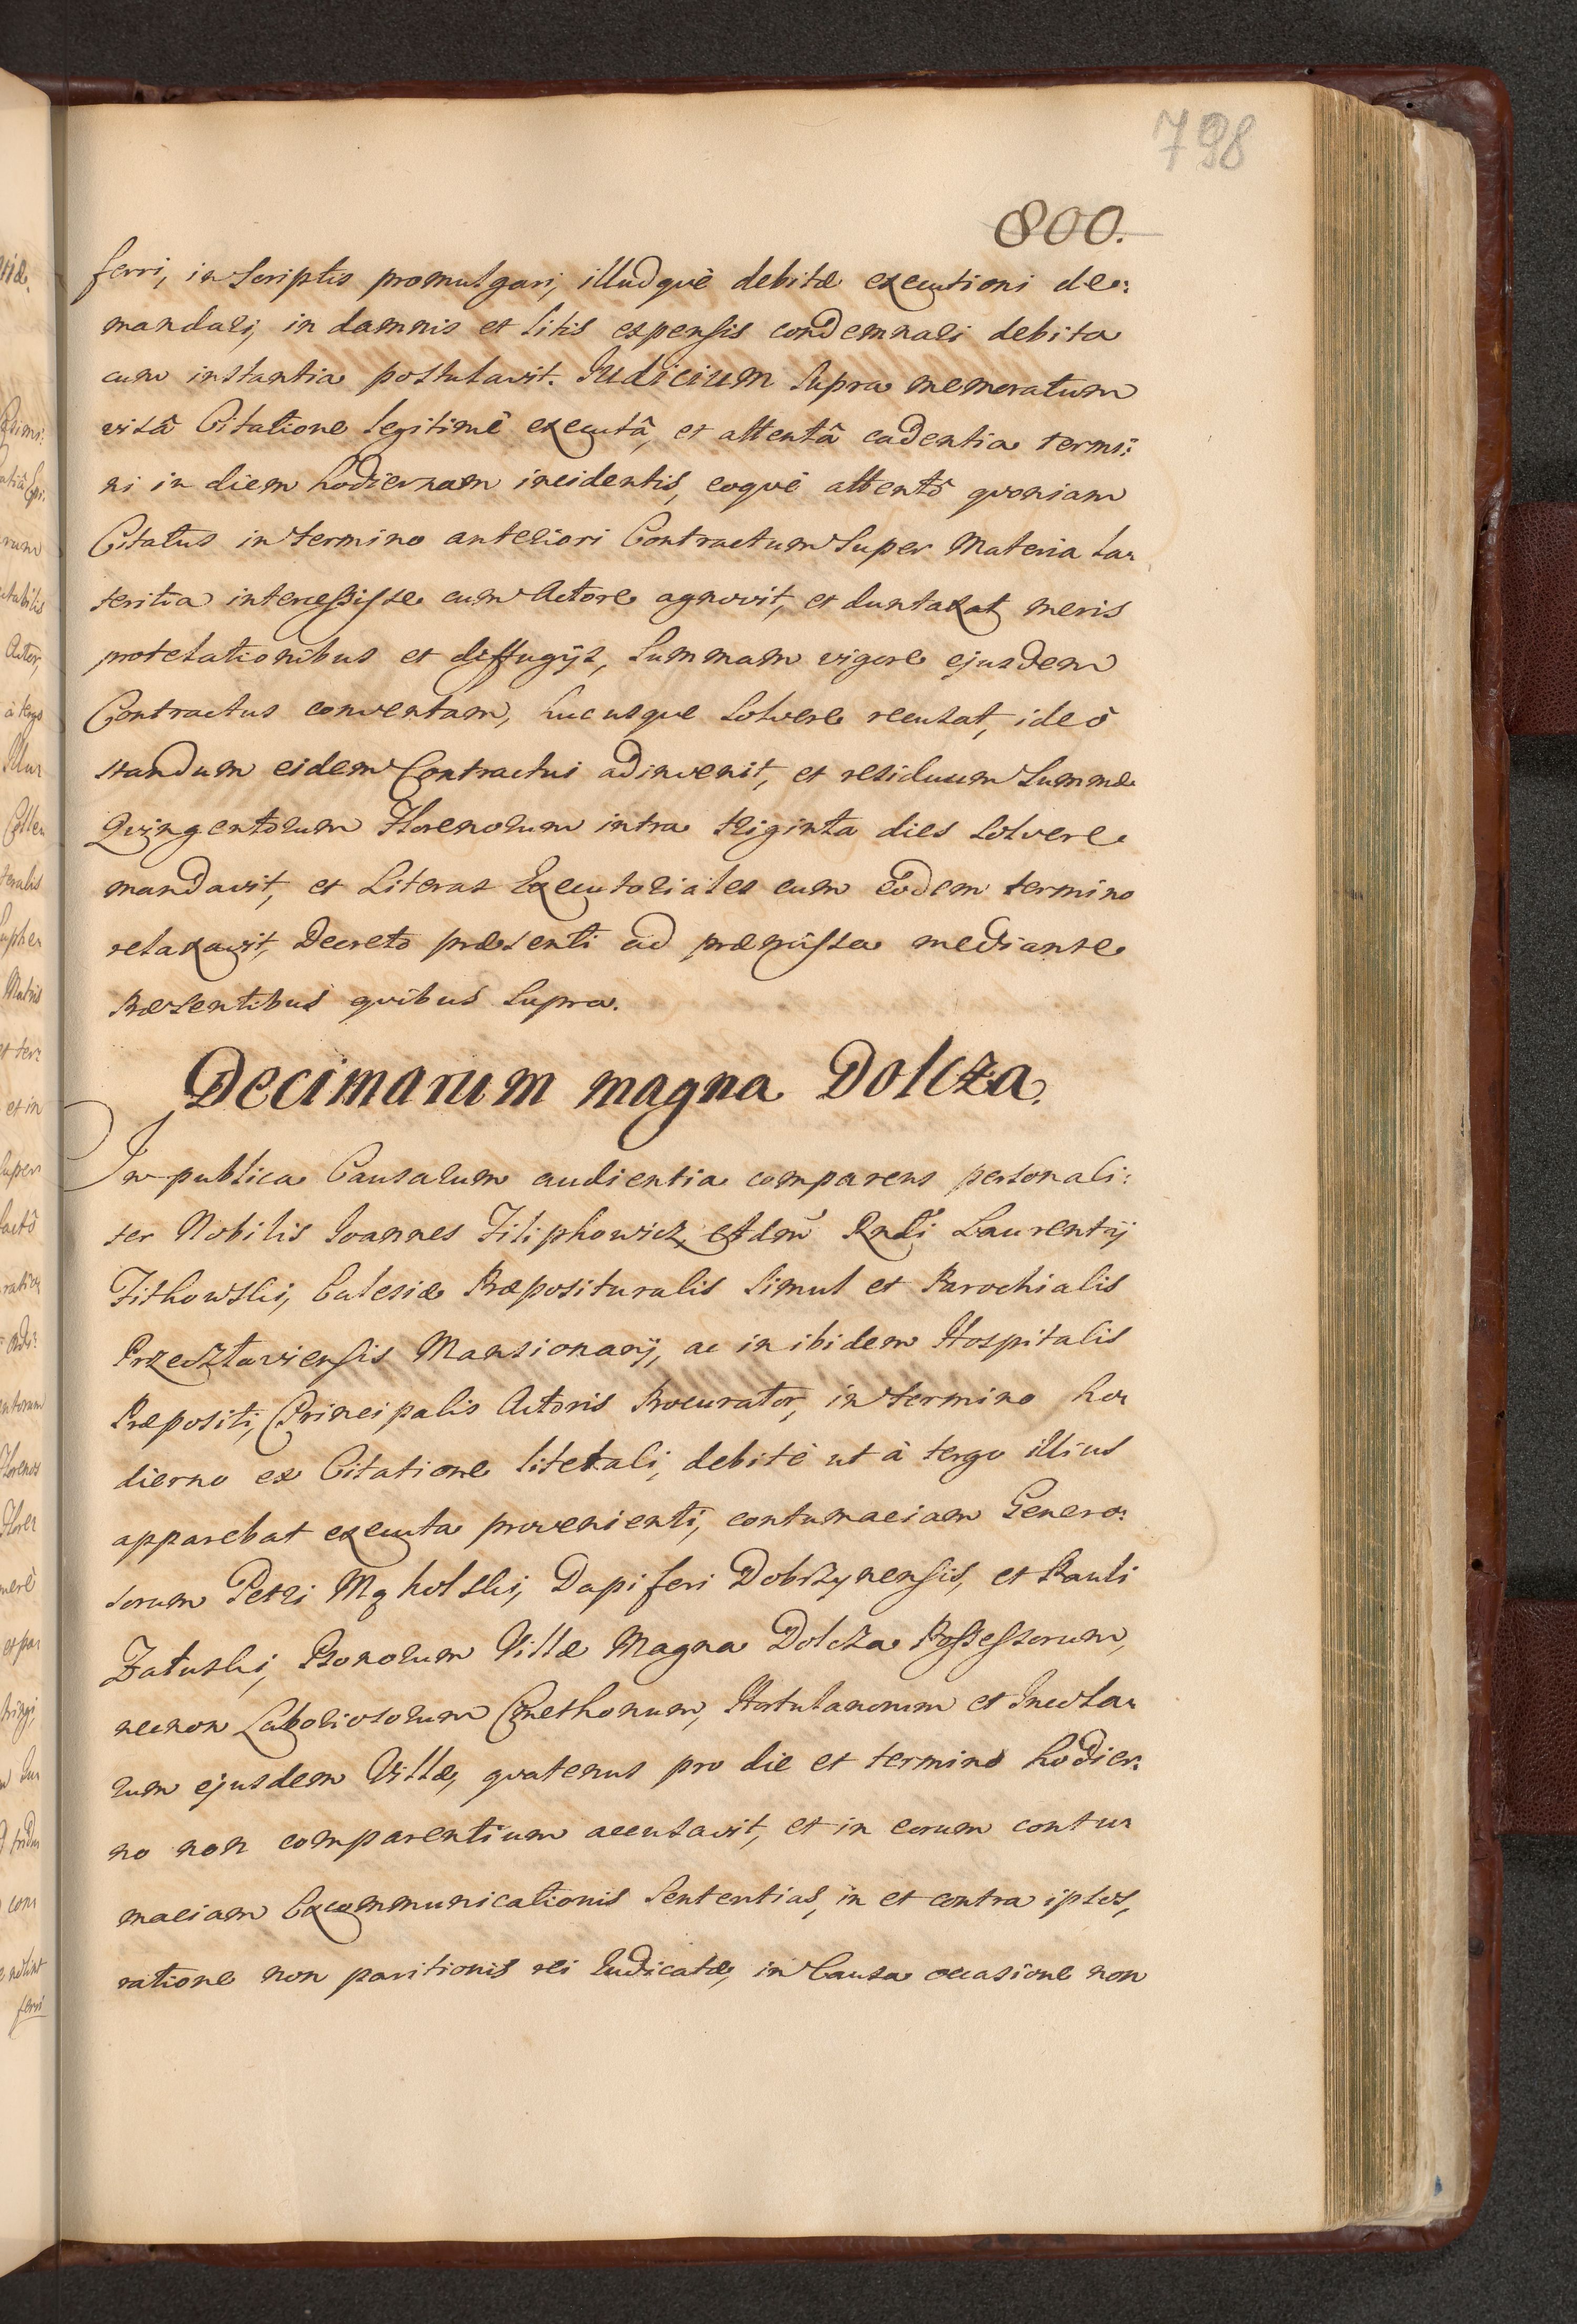 798
800.
ferri, in Scriptis promulgari, illudquè debitæ executioni de:
mandari, in damnis et litis expensis condemnari debita
cum instantia postulavit. Iudicium Supra memoratum
visâ Citatione legitimè executâ, et attentâ cadentia termi:
ni in diem hodiernam incidentis, eoquè attentô quoniam
Citatus in termino anteriori Contractum Super Materia la:
teritia intercessisse cum Actore agnovit, et duntaxat meris
protelationibus et diffugijs, Summam vigore ejusdem
Contractus conventam, hucusque Solvere recusat, ideò
standum eidem Contractui adinvenit, et residuum Summæ
Quingentorum Florenorum intra triginta dies Solvere
mandavit, et Literas Executoriales cum eôdem termino
relaxavit, Decreto præsenti ad præmissa mediante
Præsentibus quibus Supra.
Decimarum magna Dolcza.
In publica Causarum audientia comparens personali:
ter Nobilis Ioannes Filiphowicz, Adm̃ Rndi Laurentij
Fithowski, Ecclesiæ Præposituralis Simul et Parochialis
Przecztaviensis Mansionarij, ac in ibidem Hospitalis
Præpositi, Principalis Actoris Procurator, in termino ho:
dierno ex Citatione literali, debitè ut à tergo illius
apparebat executa provenienti, contumaciam Genero:
sorum Petri Mąkolski, Dapiferi Dobrzynensis, et Pauli
Załuski, Bonorum Villæ Magna Dolcza Possessorum,
necnon Laboriosorum Cmethonum, Hortulanorum et Incola:
rum ejusdem Villæ, quatenus pro die et termino hodier:
no non comparentium accusavit, et in eorum contu:
maciam Excommunicationis Sententias, in et contra ipsos,
ratione non paritionis rei Iudicatæ, in Causa occasione non